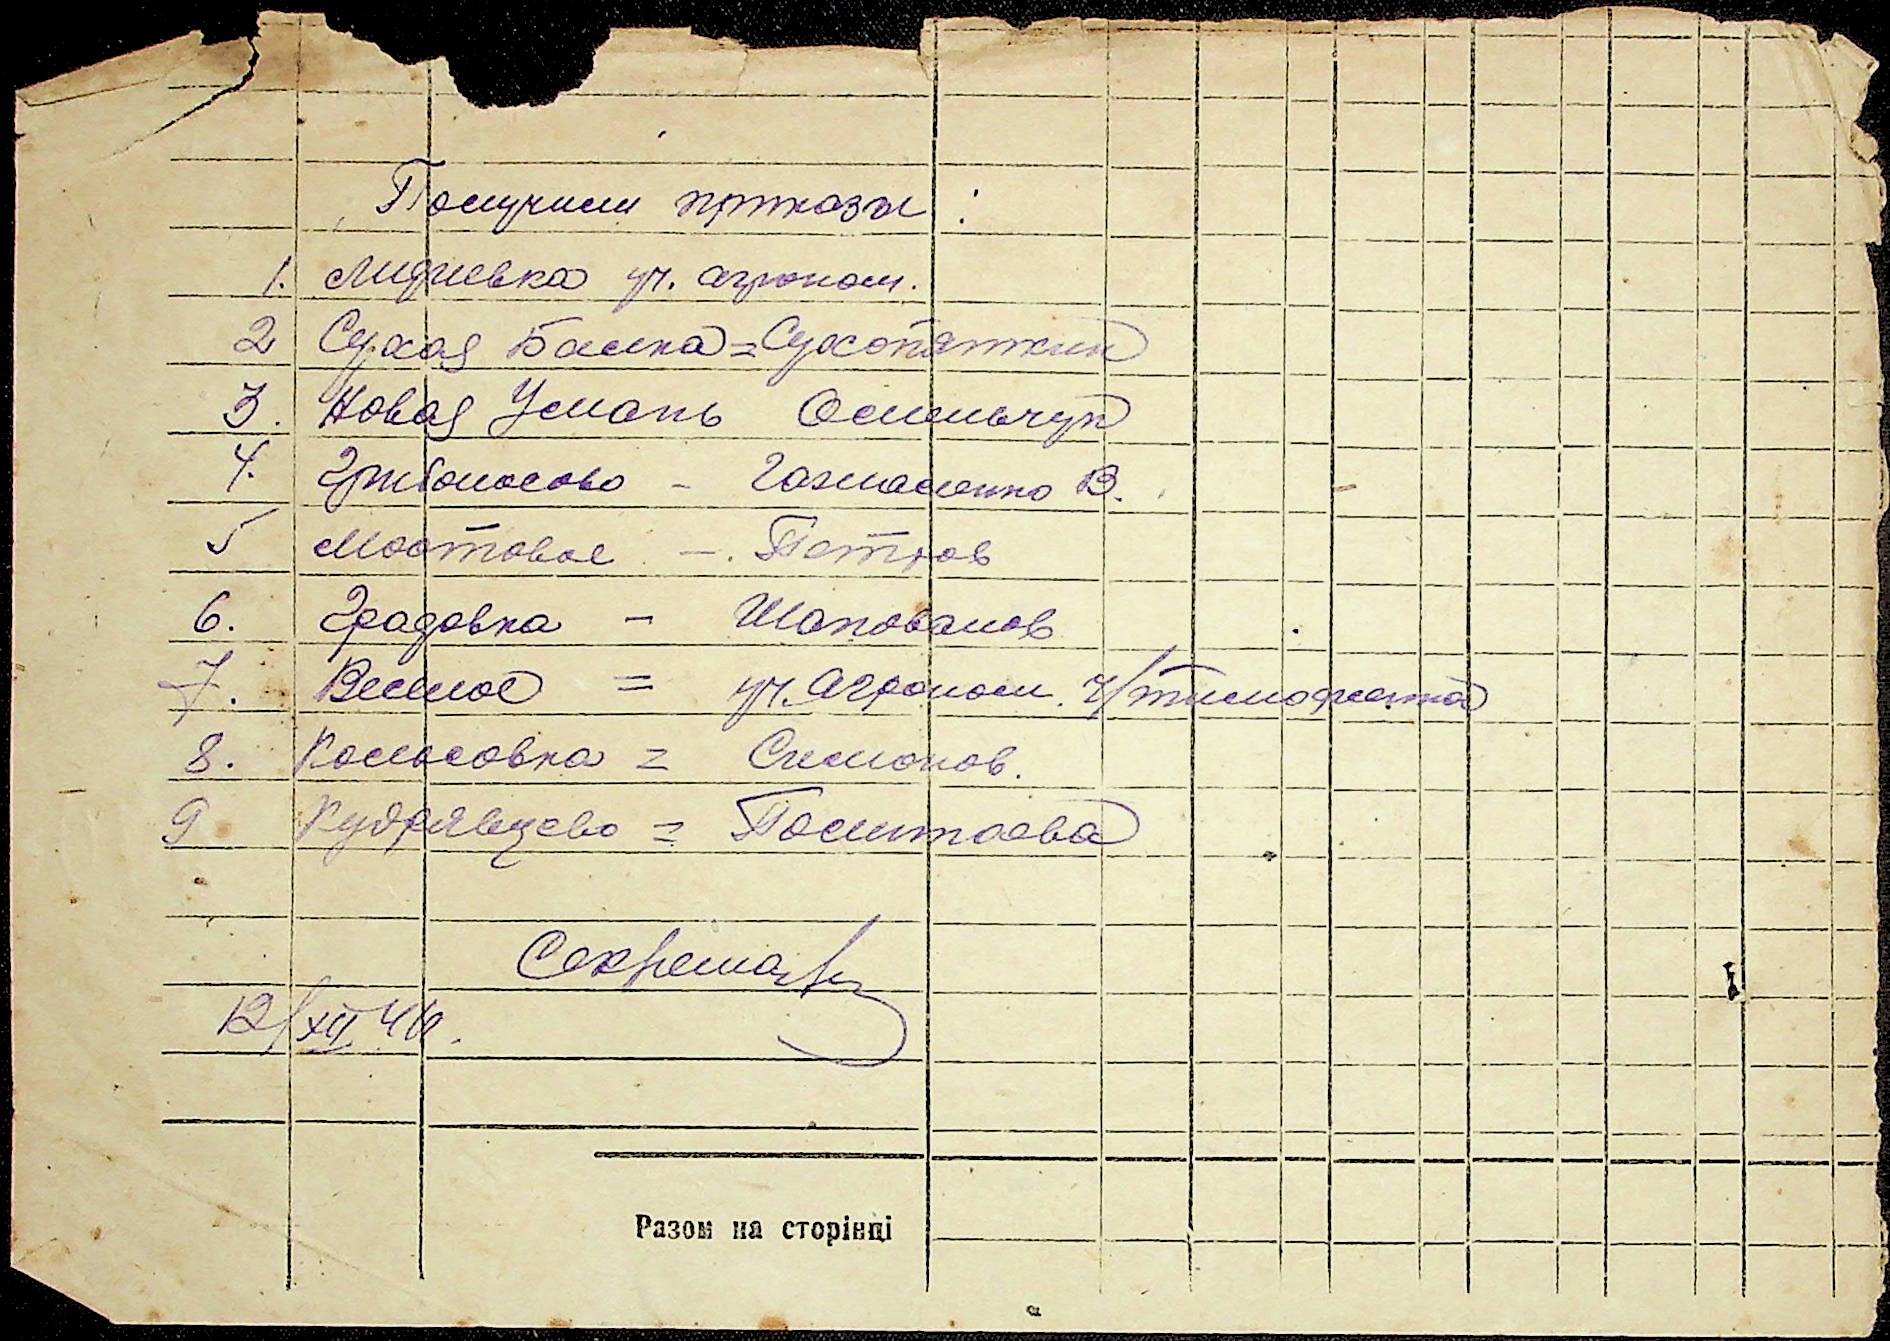 Получили приказы:
1. Лидиевка уч. агроном.
2 Сухая Балка = Сухопяткин
3. Новая Умань Осмильчук
4. Трибоносово - Гахмаленко В.
5 Мостовое -. Петров
6. Градовка - Шаповалов
7. Веселое = уч. Агроном. ч/Тимофеева
8. Колосовка = Симонов.
9 Кудрявцево = Политаева
Секретарь
12/XII 46.
Разом на сторінці